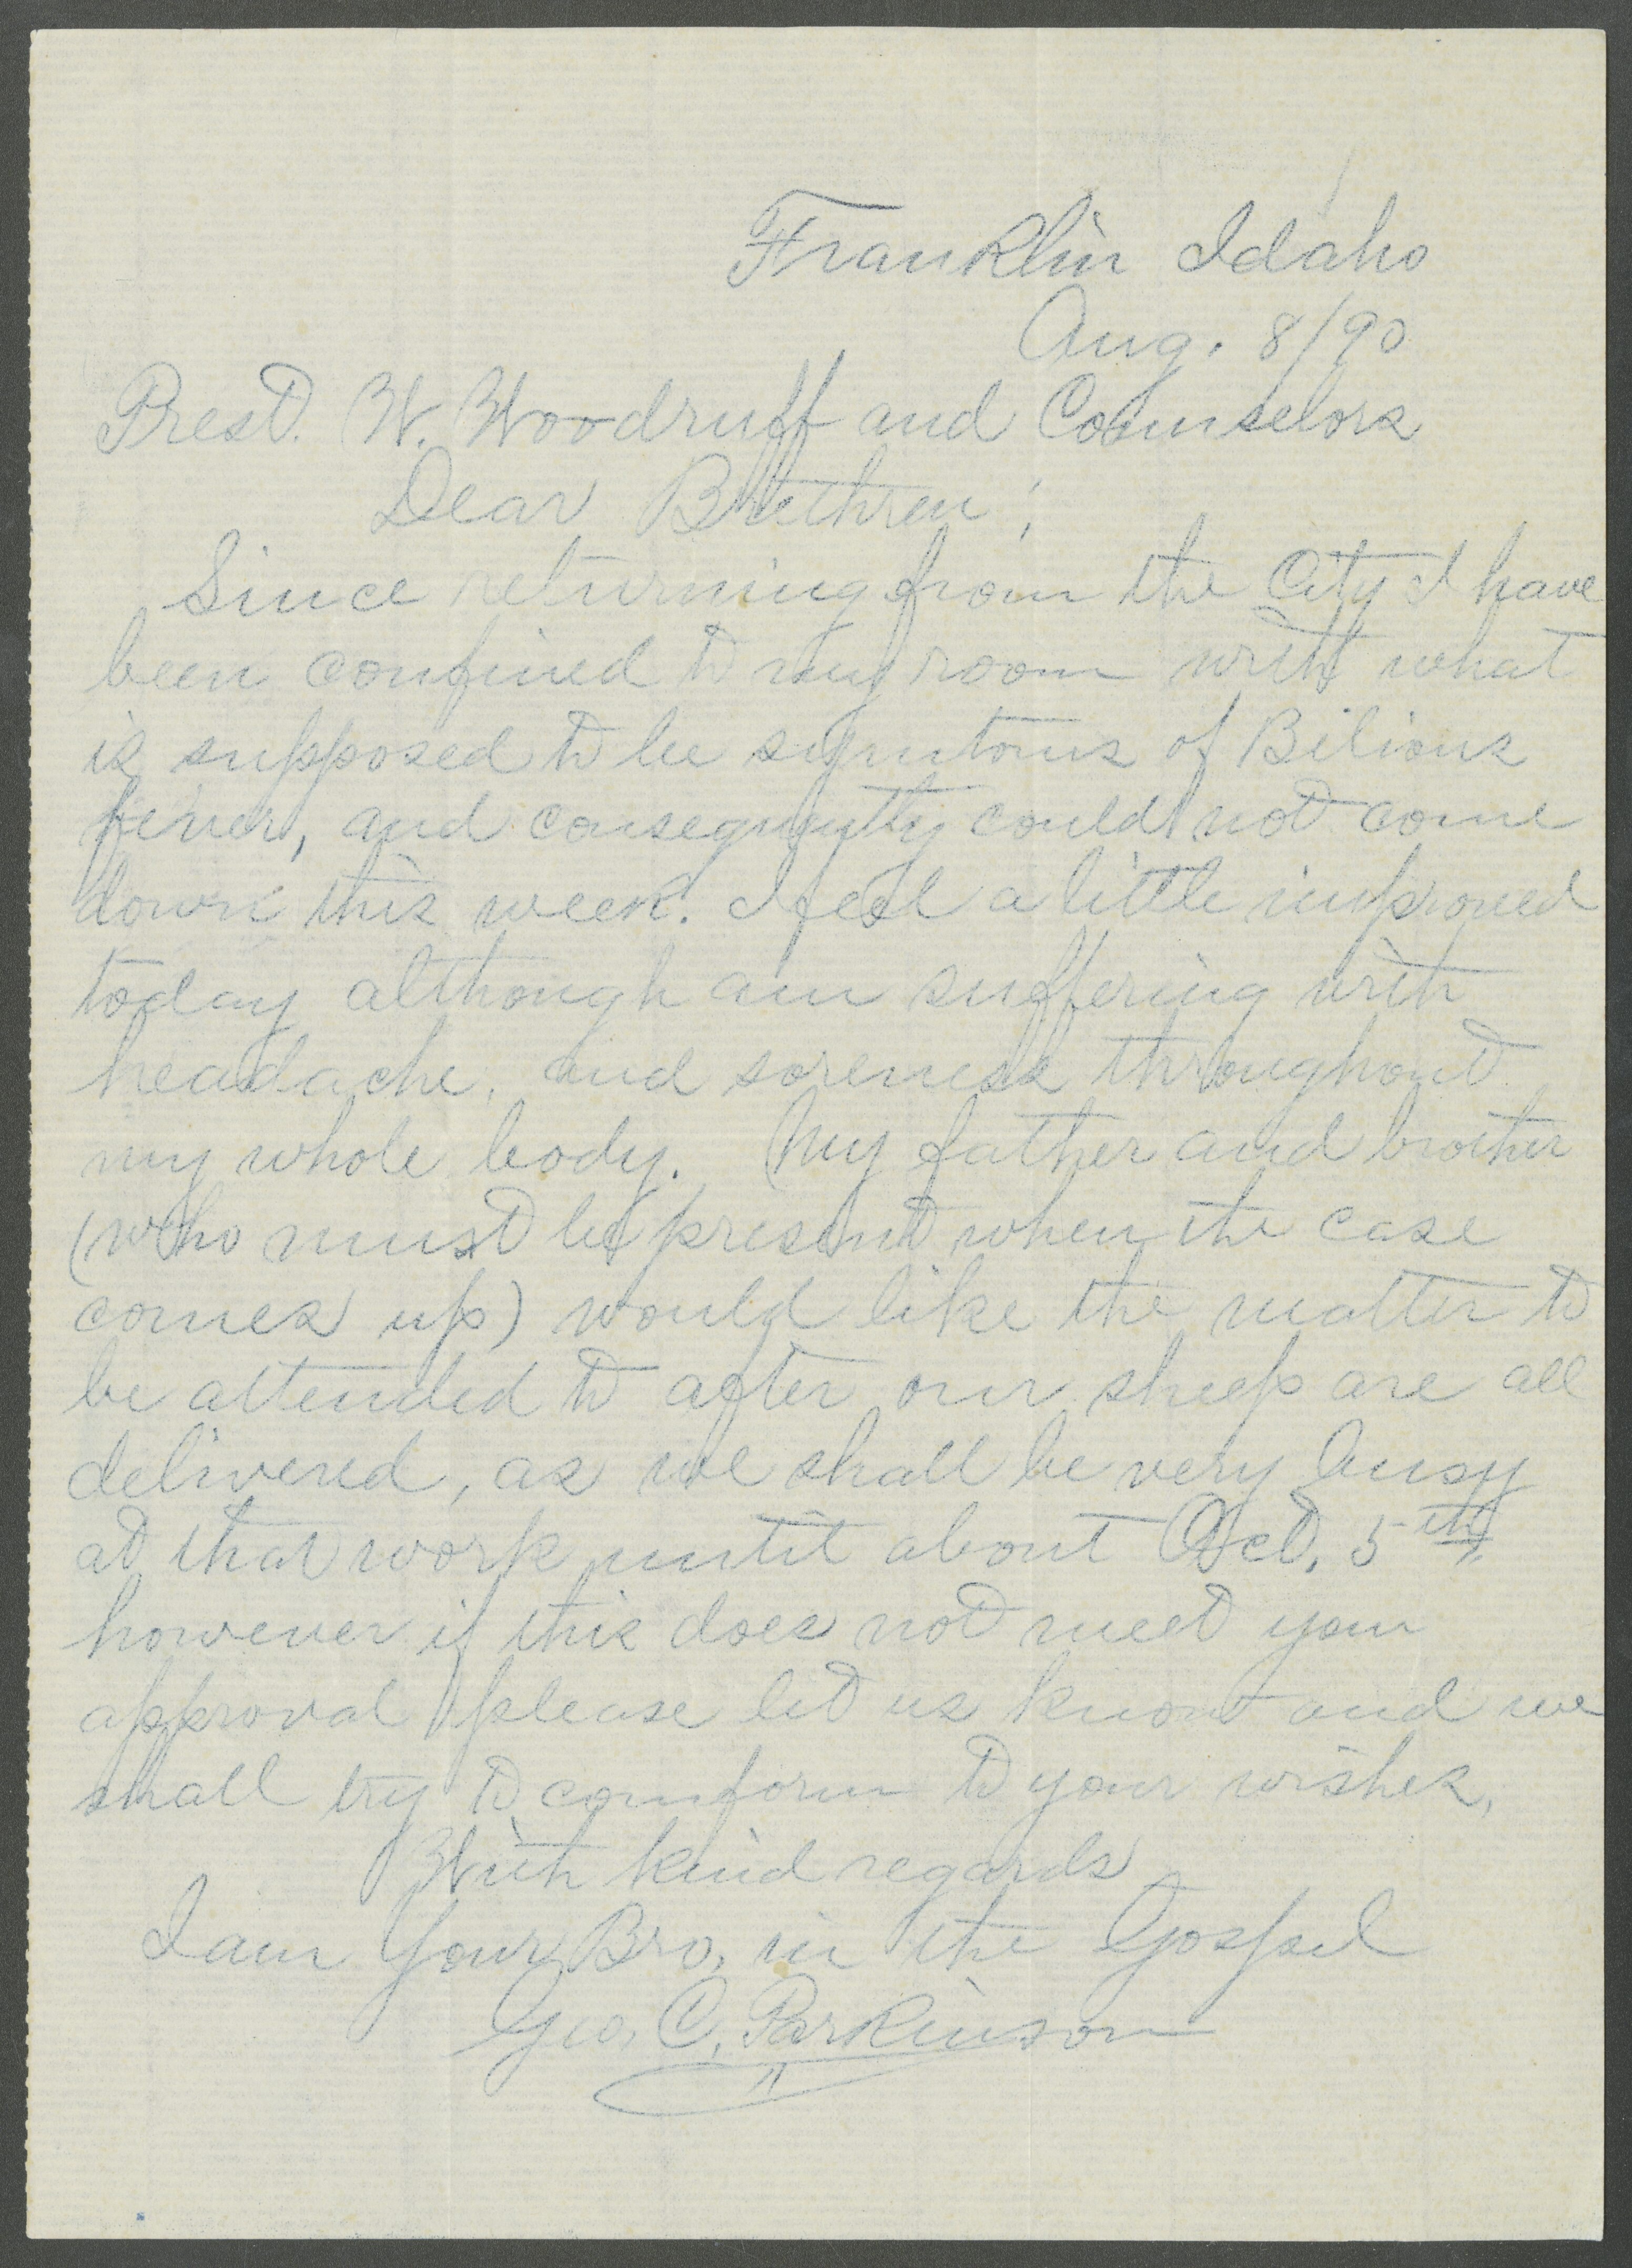 Franklin Idaho
Aug. 8/90
Prest. W. Woodruff and Counselors
Dear Brethren;
Since returning from the City I have
been confined to my room with what
is supposed to be symtoms of Bilious
fever, and consequently could not come
down this week. I feel a little improved
today although am suffering with
headache, and soreness throughout
my whole body. My father and brother
(who must be present when the case
comes up) would like the matter to
be attended to after our sheep are all
delivered, as we shall be very busy
at that work until about Oct. 5th,
however if this does not meet your
approval please let us know and we
shall try to comform to your wishes,
With kind regards
I am Your Bro. in the Gospel
Geo. C. Parkinson